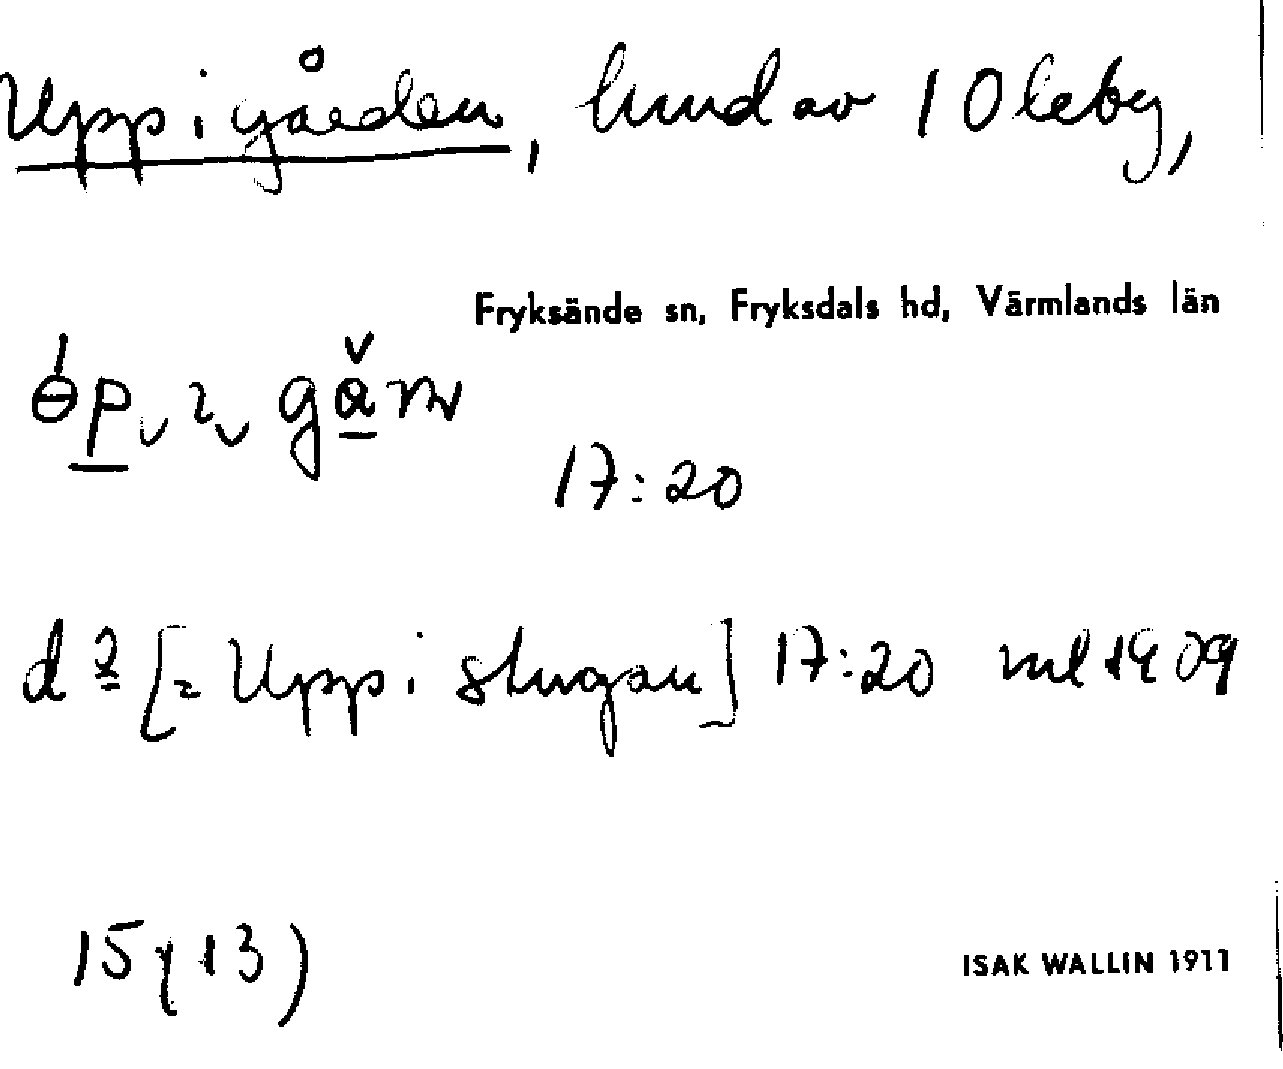 Uppigården, hmd av 1 Oleby,
Fryksände sn, Fryksdals hd, Värmlands län
17:20
d:o [= Uppi stugan] 17:20 ml 1909
15 (13)
ISAK WALLIN 1911